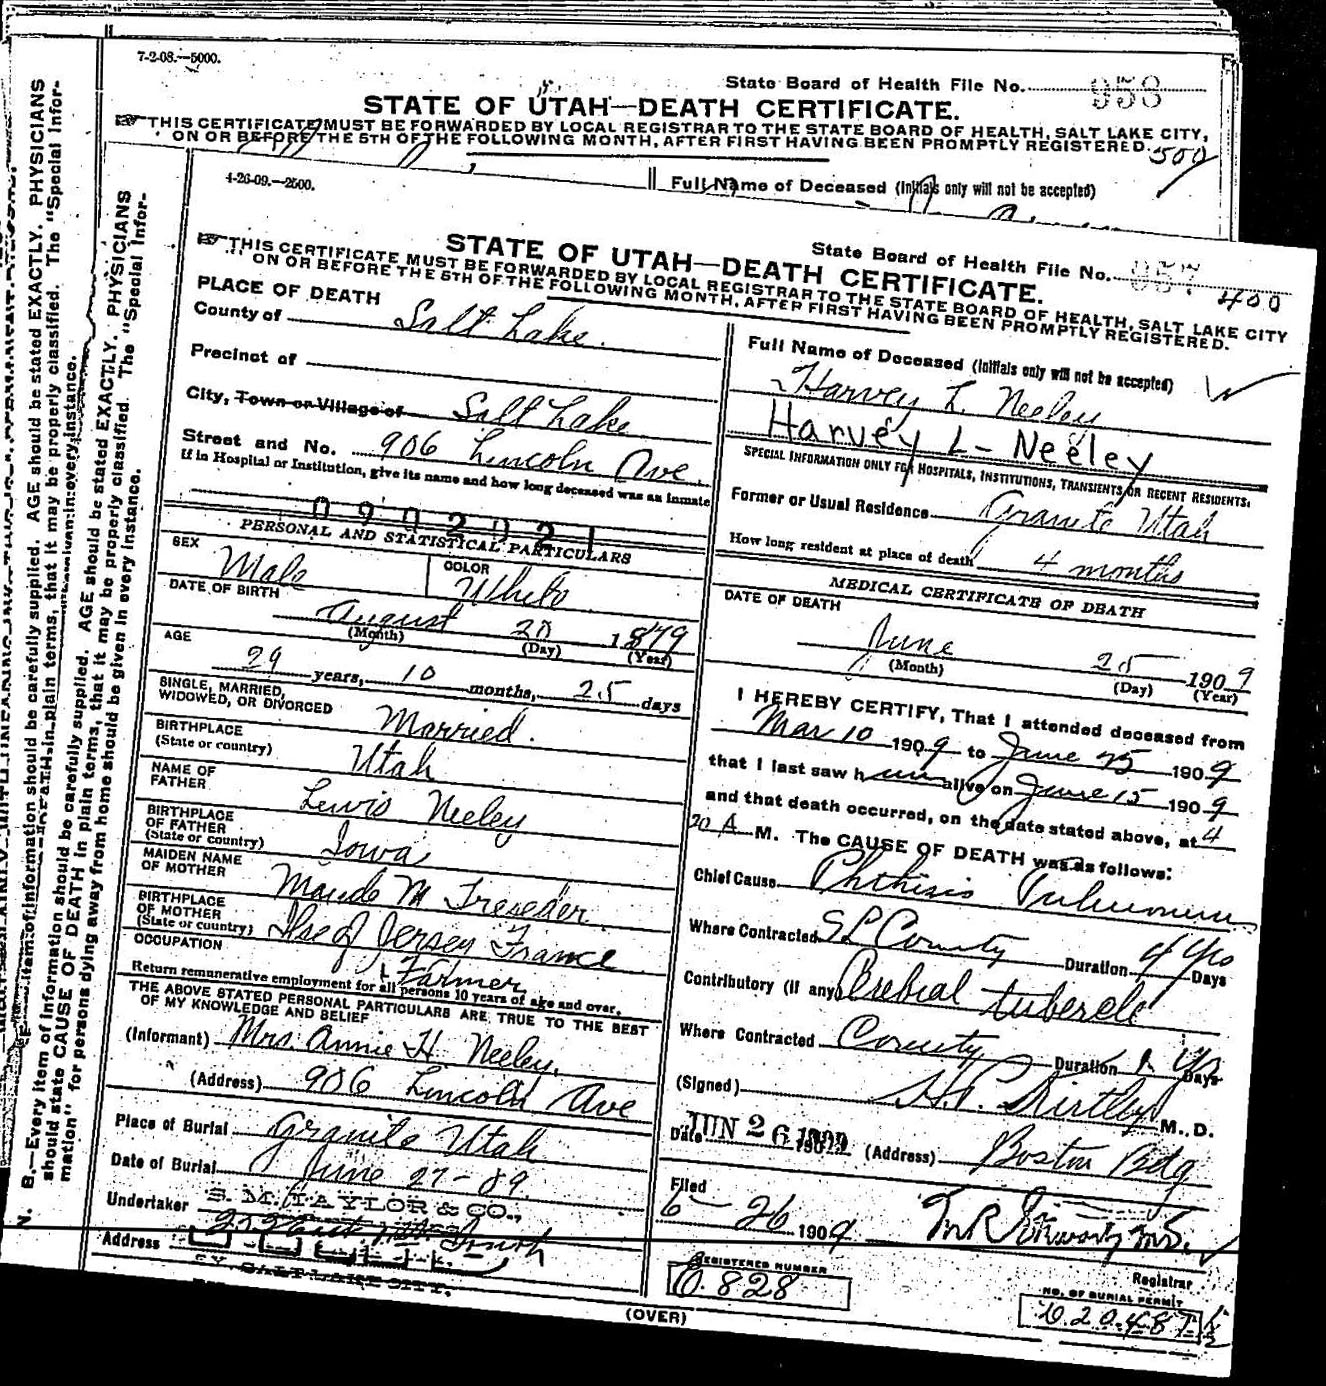 7-2-08.—5000.
State Board of Health File No. 958
STATE OF UTAH—DEATH CERTIFICATE.
THIS CERTIFICATE MUST BE FORWARDED BY LOCAL REGISTRAR TO THE STATE BOARD OF HEALTH, SALT LAKE CITY,
ON OR BEFORE THE 5TH OF THE FOLLOWING MONTH, AFTER FIRST HAVING BEEN PROMPTLY REGISTERED.
500
Full Name of Deceased (Initials only will not be accepted)
4-26-09.—2500.
State Board of Health File No. 957
400
STATE OF UTAH—DEATH CERTIFICATE.
THIS CERTIFICATE MUST BE FORWARDED BY LOCAL REGISTRAR TO THE STATE BOARD OF HEALTH, SALT LAKE CITY
ON OR BEFORE THE 5TH OF THE FOLLOWING MONTH, AFTER FIRST HAVING BEEN PROMPTLY REGISTERED.
PLACE OF DEATH
County of Salt Lake.
Precinct of
City, Town or Village of Salt Lake
Street and No. 906 Lincoln Ave.
If in Hospital or Institution, give its name and how long deceased was an inmate
0902021
PERSONAL AND STATISTICAL PARTICULARS
SEX Male
COLOR White
DATE OF BIRTH
August 20 1879
(Month) (Day) (Year)
AGE
29 years, 10 months, 25 days
SINGLE, MARRIED,
WIDOWED, OR DIVORCED Married.
BIRTHPLACE
(State or country) Utah
NAME OF
FATHER Lewis Neeley
BIRTHPLACE
OF FATHER
(State or country) Iowa
MAIDEN NAME
OF MOTHER Maude M Treseder
BIRTHPLACE
OF MOTHER
(State or country) Ilse of Jersey France
OCCUPATION
Farmer
Return remunerative employment for all persons 10 years of age and over.
THE ABOVE STATED PERSONAL PARTICULARS ARE TRUE TO THE BEST
OF MY KNOWLEDGE AND BELIEF
(Informant) Mrs. Annie H. Neeley.
(Address) 906 Lincoln Ave
Place of Burial Granite Utah
Date of Burial June 27-09.
Undertaker S. M. TAYLOR & CO.,
Address
SALT LAKE CITY.
Full Name of Deceased (Initials only will not be accepted)
Harvey L. Neeley
Harvey L- Neeley
SPECIAL INFORMATION ONLY FOR HOSPITALS, INSTITUTIONS, TRANSIENTS OR RECENT RESIDENTS.
Former or Usual Residence Granite Utah
How long resident at place of death 4 months
MEDICAL CERTIFICATE OF DEATH
DATE OF DEATH
June 25 1909
(Month) (Day) (Year)
I HEREBY CERTIFY, That I attended deceased from
Mar 10 1909 to June 25 1909
that I last saw him alive on June 15 1909
and that death occurred, on the date stated above, at 4
20 A M. The CAUSE OF DEATH was as follows:
Chief Cause Phthisis
Where Contracted S L County Duration 4 Yrs Days
Contributory (if any) tubercle
Where Contracted County Duration 1 Yr Days
(Signed) M. D.
Date JUN 26 1909 (Address) Boston Bdg
Filed
6-26 1909
Registrar
REGISTERED NUMBER
O.828
NO. OF BURIAL PERMIT
(OVER)
N. B.—Every item of information should be carefully supplied. AGE should be stated EXACTLY. PHYSICIANS
should state CAUSE OF DEATH in plain terms, that it may be properly classified. The "Special Infor-
mation" for persons dying away from home should be given in every instance.